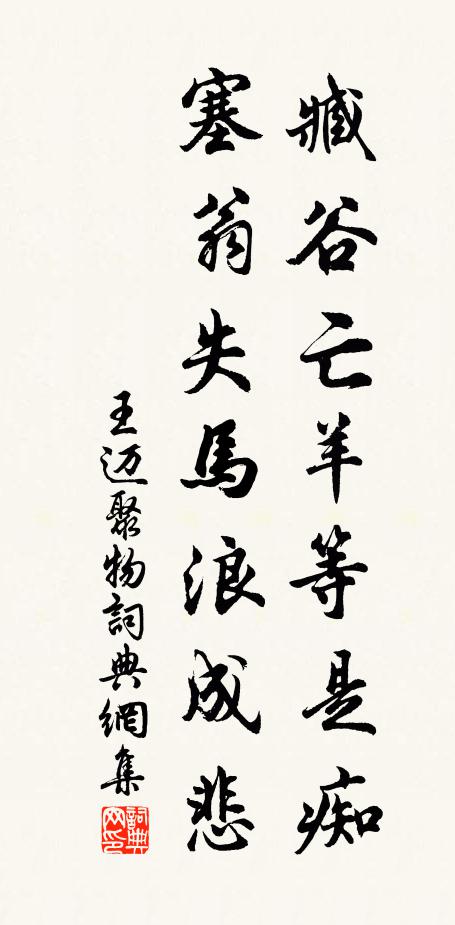 臧谷亡羊等是痴
塞翁失馬浪成悲
王迈聚物詞典網集
詞典网印